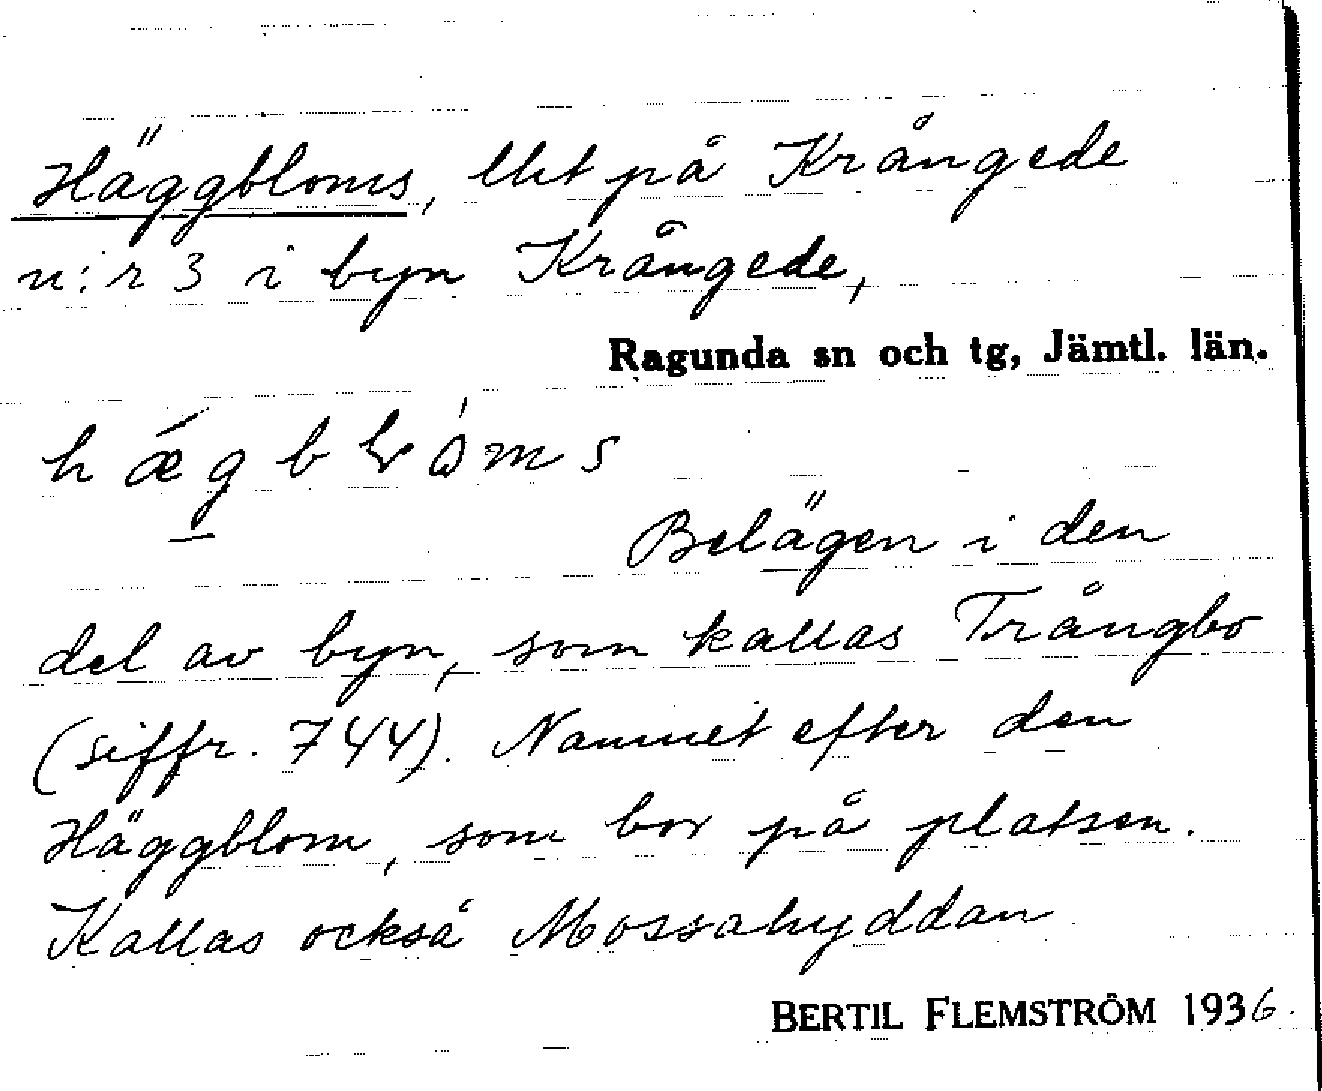 Häggbloms, lht på Krångede
n:r 3 i byn Krångede,
Ragunda sn och tg, Jämtl. län.
Belägen i den
del av byn, som kallas Trångbo
(siffr. 744). Namnet efter den
Häggblom, som bor på platsen.
Kallas också Mossahyddan
BERTIL FLEMSTRÖM 1936.